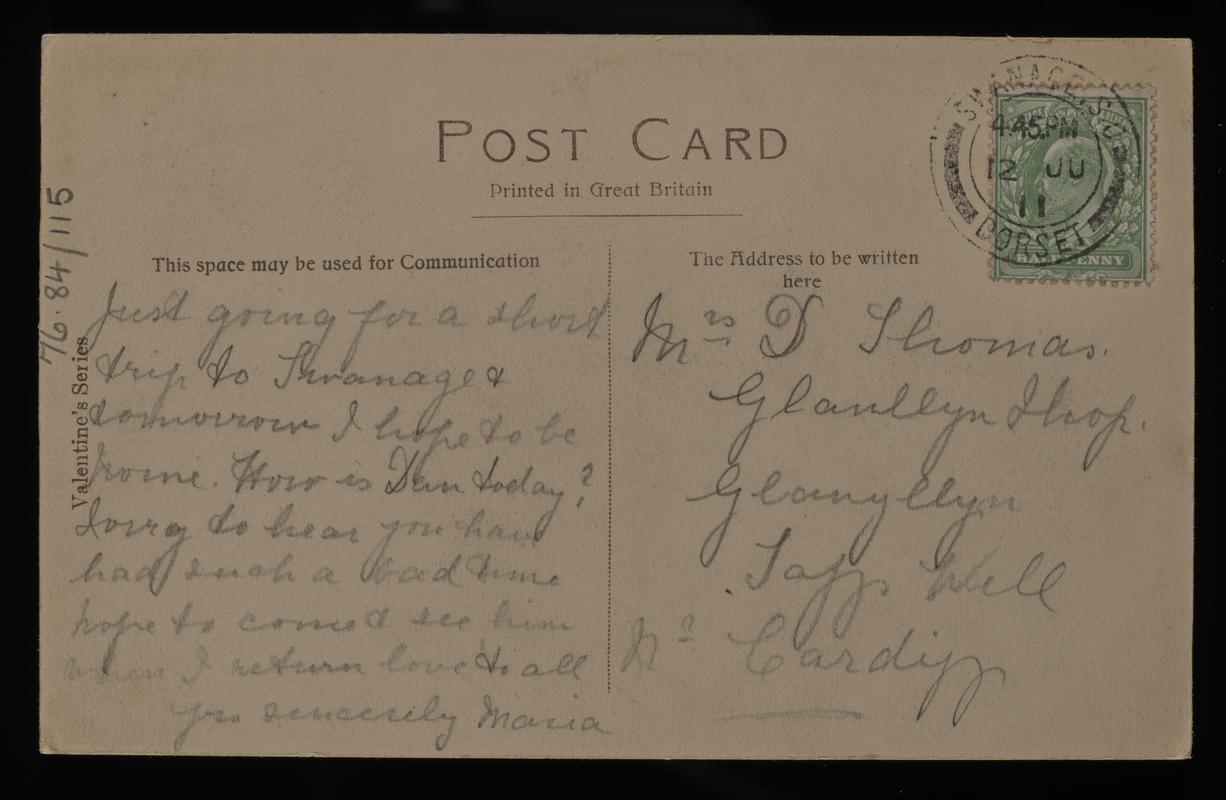 POST CARD
Printed in Great Britain
This space may be used for Communication
The Address to be written
here
76.84/115
Valentine's Series
SWANAGE. S.O
4.45.PM
12 JU
11
DORSET
HALFPENNY
Just going for a short
trip to Swanage &
tomorrow I hope to be
home. How is Dan today?
Sorry to hear you have
had such a bad time
hope to come & see him
when I return love to all
yrs sincerely Maria
Mrs D Thomas.
Glanllyn Shop.
Glanyllyn
Taffs Well
Nr Cardiff